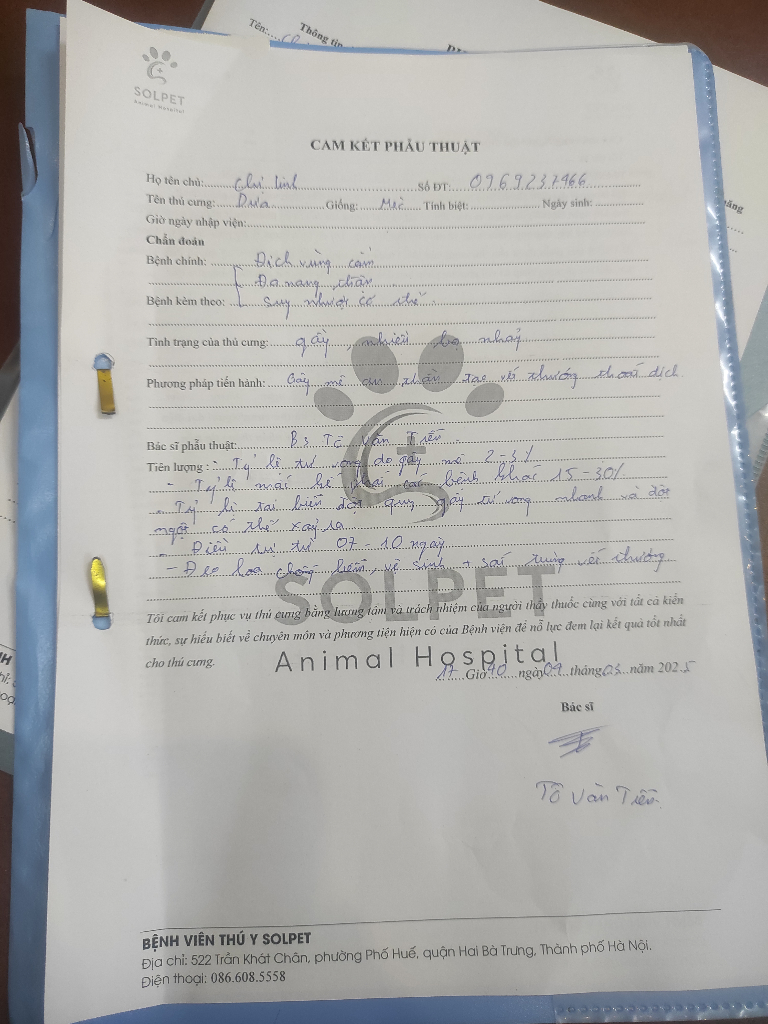 Tên:
Thông tin
SOLPET
Animal Hospital
CAM KẾT PHẪU THUẬT
Họ tên chủ: Chị Linh Số ĐT: 0969237466
Tên thú cưng: Dưa Giống: Mèo Tính biệt: Ngày sinh:
Giờ ngày nhập viện:
Chẩn đoán
Bệnh chính: Dịch vùng cằm
Đa nang thận
Bệnh kèm theo: Suy nhược cơ thể
Tình trạng của thú cưng: gầy, nhiều
Phương pháp tiến hành: Gây mê thân tạo vết thương thoát dịch
Bác sĩ phẫu thuật: Bs Tô Văn Tiến
Tiên lượng : - Tỷ lệ tử vong do gây mê 2-3%
- Tỷ lệ mắc phải các bệnh khác 15-30%
- Tỷ lệ tai biến đột quỵ gây tử vong nhanh và đột
ngột có thể xảy ra
- Điều trị từ 07-10 ngày
- Đeo loa chống liếm, vệ sinh + sát trùng vết thương
Tôi cam kết phục vụ thú cưng bằng lương tâm và trách nhiệm của người thầy thuốc cùng với tất cả kiến
thức, sự hiểu biết về chuyên môn và phương tiện hiện có của Bệnh viện để nỗ lực đem lại kết quả tốt nhất
cho thú cưng.
SOLPET
Animal Hospital
17 Giờ 40 ngày 09 tháng 03 năm 2025
Bác sĩ
Tô Văn Tiến
BỆNH VIÊN THÚ Y SOLPET
Địa chỉ: 522 Trần Khát Chân, phường Phố Huế, quận Hai Bà Trưng, Thành phố Hà Nội.
Điện thoại: 086.608.5558